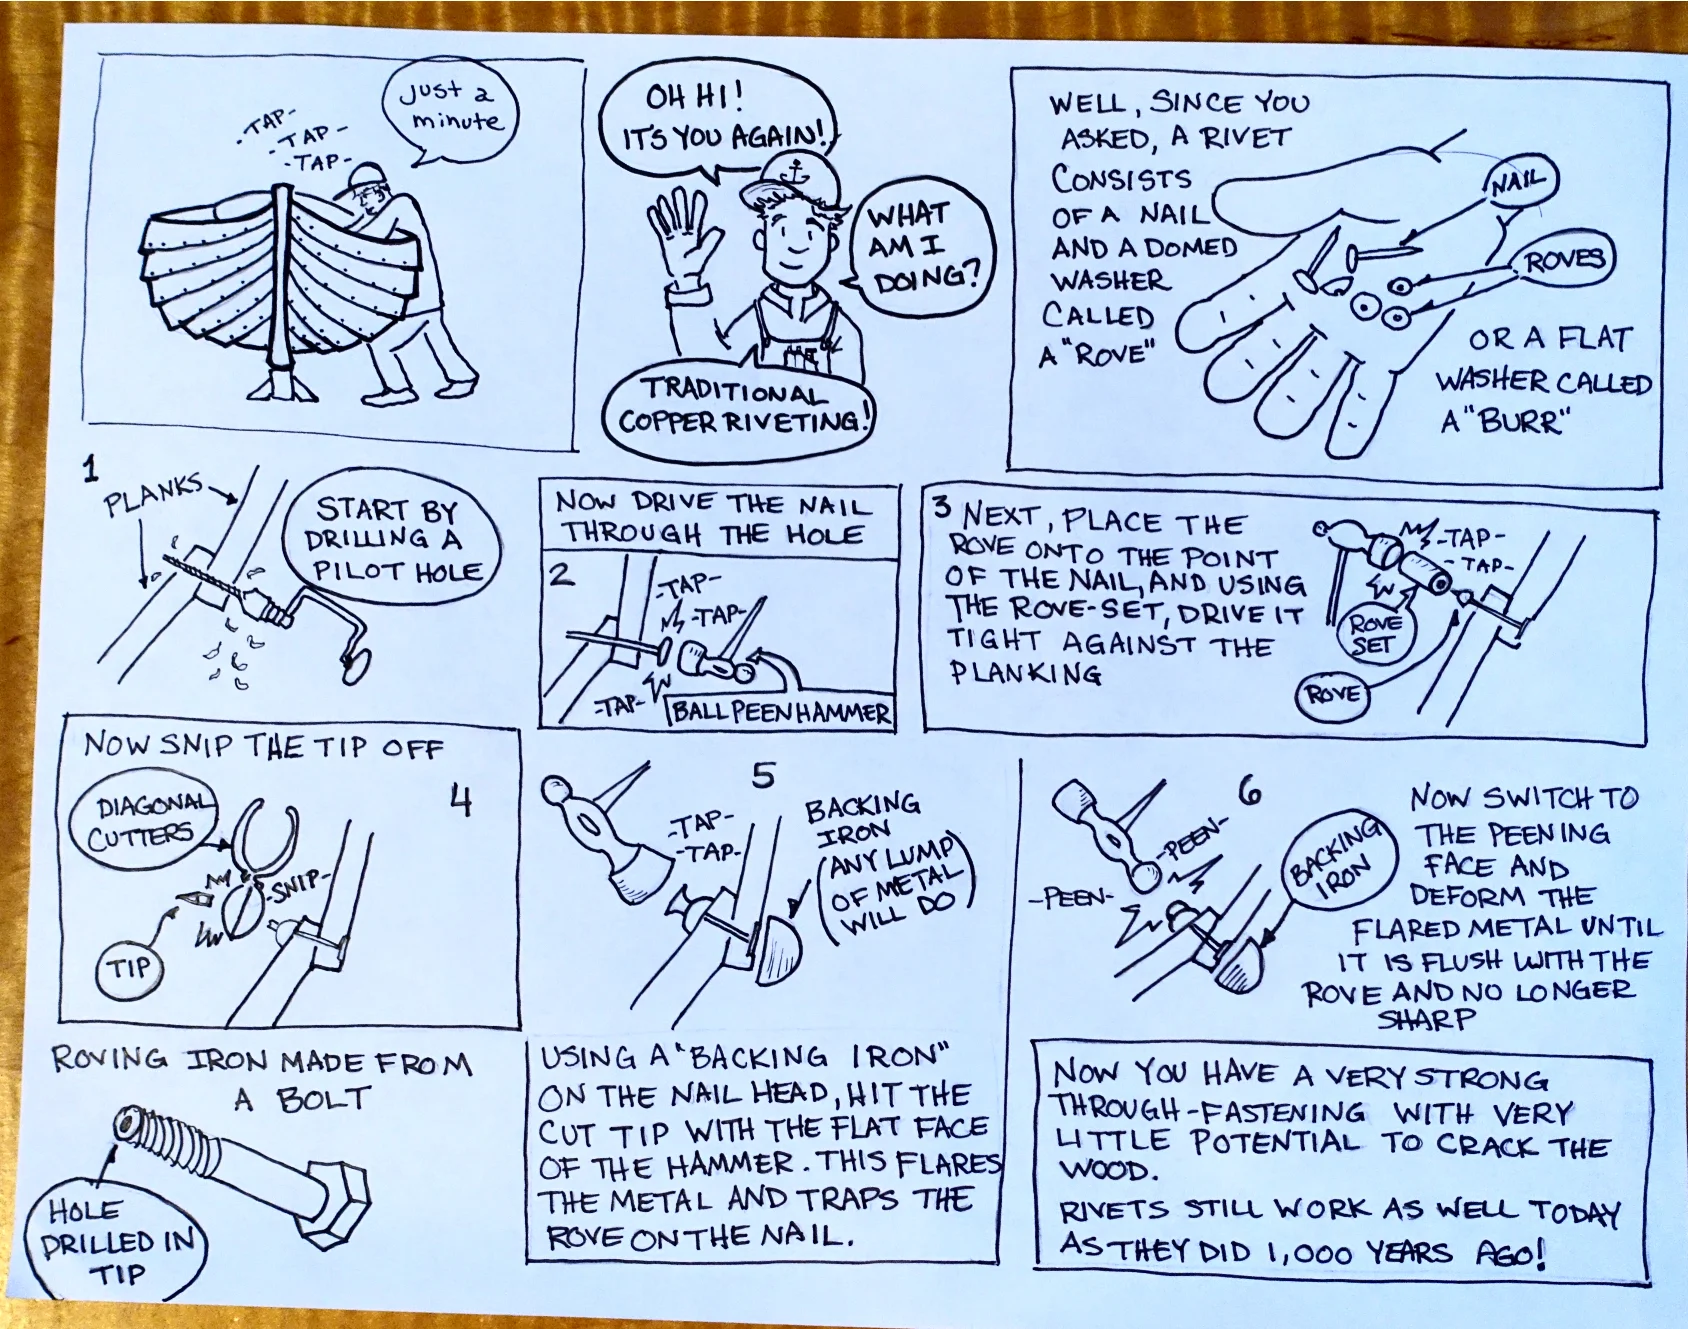 -TAP-
-TAP-
-TAP-
Just a
minute
OH HI!
IT'S YOU AGAIN!
WHAT
AM I
DOING?
TRADITIONAL
COPPER RIVETING!
WELL, SINCE YOU
ASKED, A RIVET
CONSISTS
OF A NAIL
AND A DOMED
WASHER
CALLED
A "ROVE"
NAIL
ROVES
OR A FLAT
WASHER CALLED
A "BURR"
1
PLANKS
START BY
DRILLING A
PILOT HOLE
NOW DRIVE THE NAIL
THROUGH THE HOLE
2
-TAP-
-TAP-
-TAP-
BALL PEEN HAMMER
3 NEXT, PLACE THE
ROVE ONTO THE POINT
OF THE NAIL, AND USING
THE ROVE-SET, DRIVE IT
TIGHT AGAINST THE
PLANKING
-TAP-
-TAP-
ROVE
SET
ROVE
NOW SNIP THE TIP OFF
4
DIAGONAL
CUTTERS
-SNIP-
TIP
5
-TAP-
-TAP-
BACKING
IRON
(ANY LUMP
OF METAL
WILL DO)
6
-PEEN-
-PEEN-
BACKING
IRON
NOW SWITCH TO
THE PEENING
FACE AND
DEFORM THE
FLARED METAL UNTIL
IT IS FLUSH WITH THE
ROVE AND NO LONGER
SHARP
ROVING IRON MADE FROM
A BOLT
HOLE
DRILLED IN
TIP
USING A "BACKING IRON"
ON THE NAIL HEAD, HIT THE
CUT TIP WITH THE FLAT FACE
OF THE HAMMER. THIS FLARES
THE METAL AND TRAPS THE
ROVE ON THE NAIL.
NOW YOU HAVE A VERY STRONG
THROUGH-FASTENING WITH VERY
LITTLE POTENTIAL TO CRACK THE
WOOD.
RIVETS STILL WORK AS WELL TODAY
AS THEY DID 1,000 YEARS AGO!